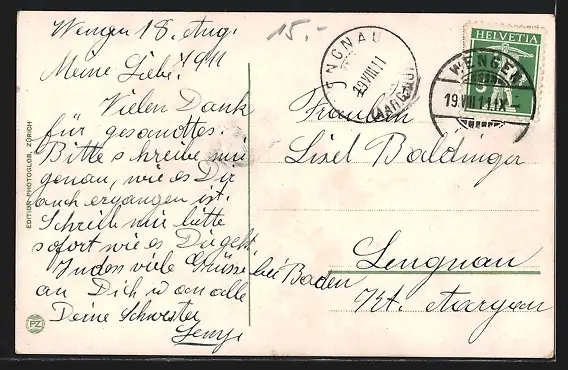 Wengen 18. Aug.
1911
Meine Liebe!
Vielen Dank
für gesandtes.
Bitte schreibe mir
genau, wie es Dir
auch ergangen ist.
Schreib mir bitte
sofort wie es Dir geht.
Indes viele Grüsse
an Dich u an alle
Deine Schwester
15.-
Fräulein
Lisel Baldinger
Lengnau
bei Baden
Kt. Aargau
HELVETIA
WENGEN
19.VIII.11.IX-
NGNAU
19.VIII.11
(AARGAU)
EDITION PHOTOGLOB, ZÜRICH
PZ